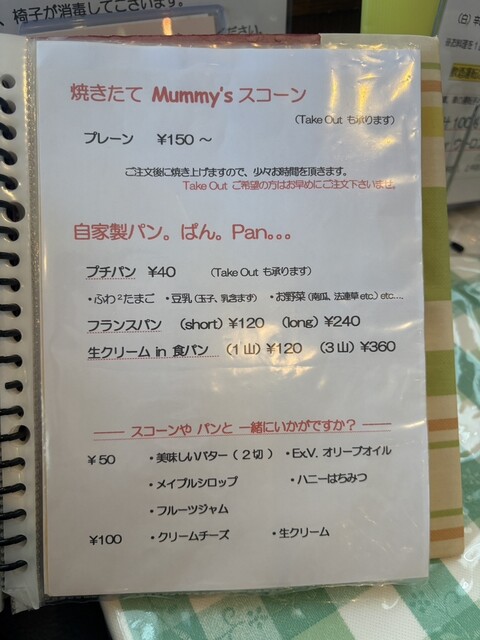 椅子が消毒してございます。
ください。
焼きたて Mummy's スコーン
(Take Out も承ります)
プレーン ¥150 ～
ご注文後に焼き上げますので、少々お時間を頂きます。
Take Out ご希望の方はお早めにご注文下さいませ。
自家製パン。ぱん。Pan。。。
プチパン ¥40 (Take Out も承ります)
・ふわ²たまご ・豆乳(玉子、乳含まず) ・お野菜(南瓜、法連草etc.) etc...
フランスパン (short) ¥120 (long) ¥240
生クリーム in 食パン (1山) ¥120 (3山) ¥360
スコーンや パンと 一緒にいかがですか？
¥50 ・美味しいバター(2切) ・Ex.V. オリーブオイル
・メイプルシロップ ・ハニーはちみつ
・フルーツジャム
¥100 ・クリームチーズ ・生クリーム